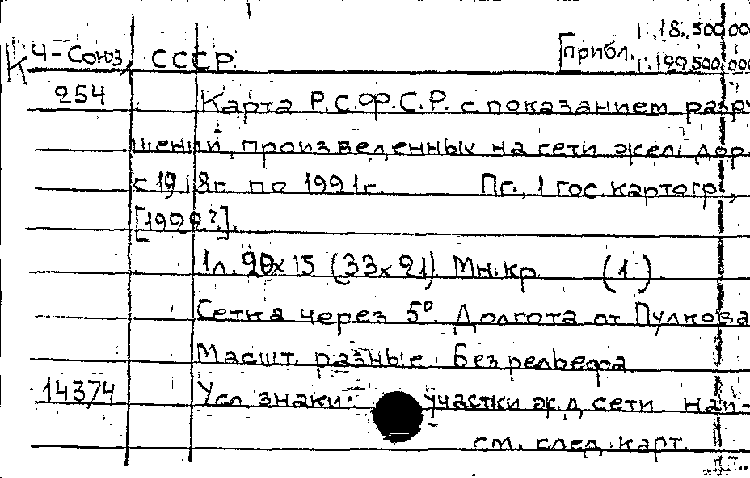 К 4-Союз СССР. [прибл. 1:18.500.000
1:199.500.000
254 Карта Р.С.Ф.С.Р. с показанием разру
шений, произведенных на сети жел. дор.
с 1918г. по 1921г. Пг., 1 гос. картогр.,
[1922?].
1л. 20х15 (33х21) Мн.кр. (1).
Сетка через 5°. Долгота от Пулкова
Масшт. разные. Без рельефа.
14374 Усл. знаки: участки ж.д. сети наи-
см. след. карт.